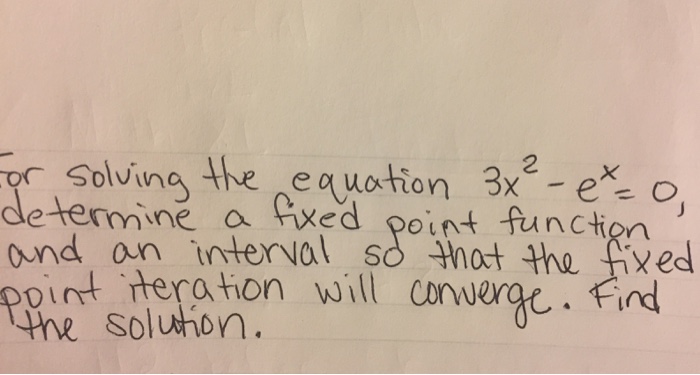 For solving the equation 3x² - eˣ = 0,
determine a fixed point function
and an interval so that the fixed
point iteration will converge. Find
the solution.